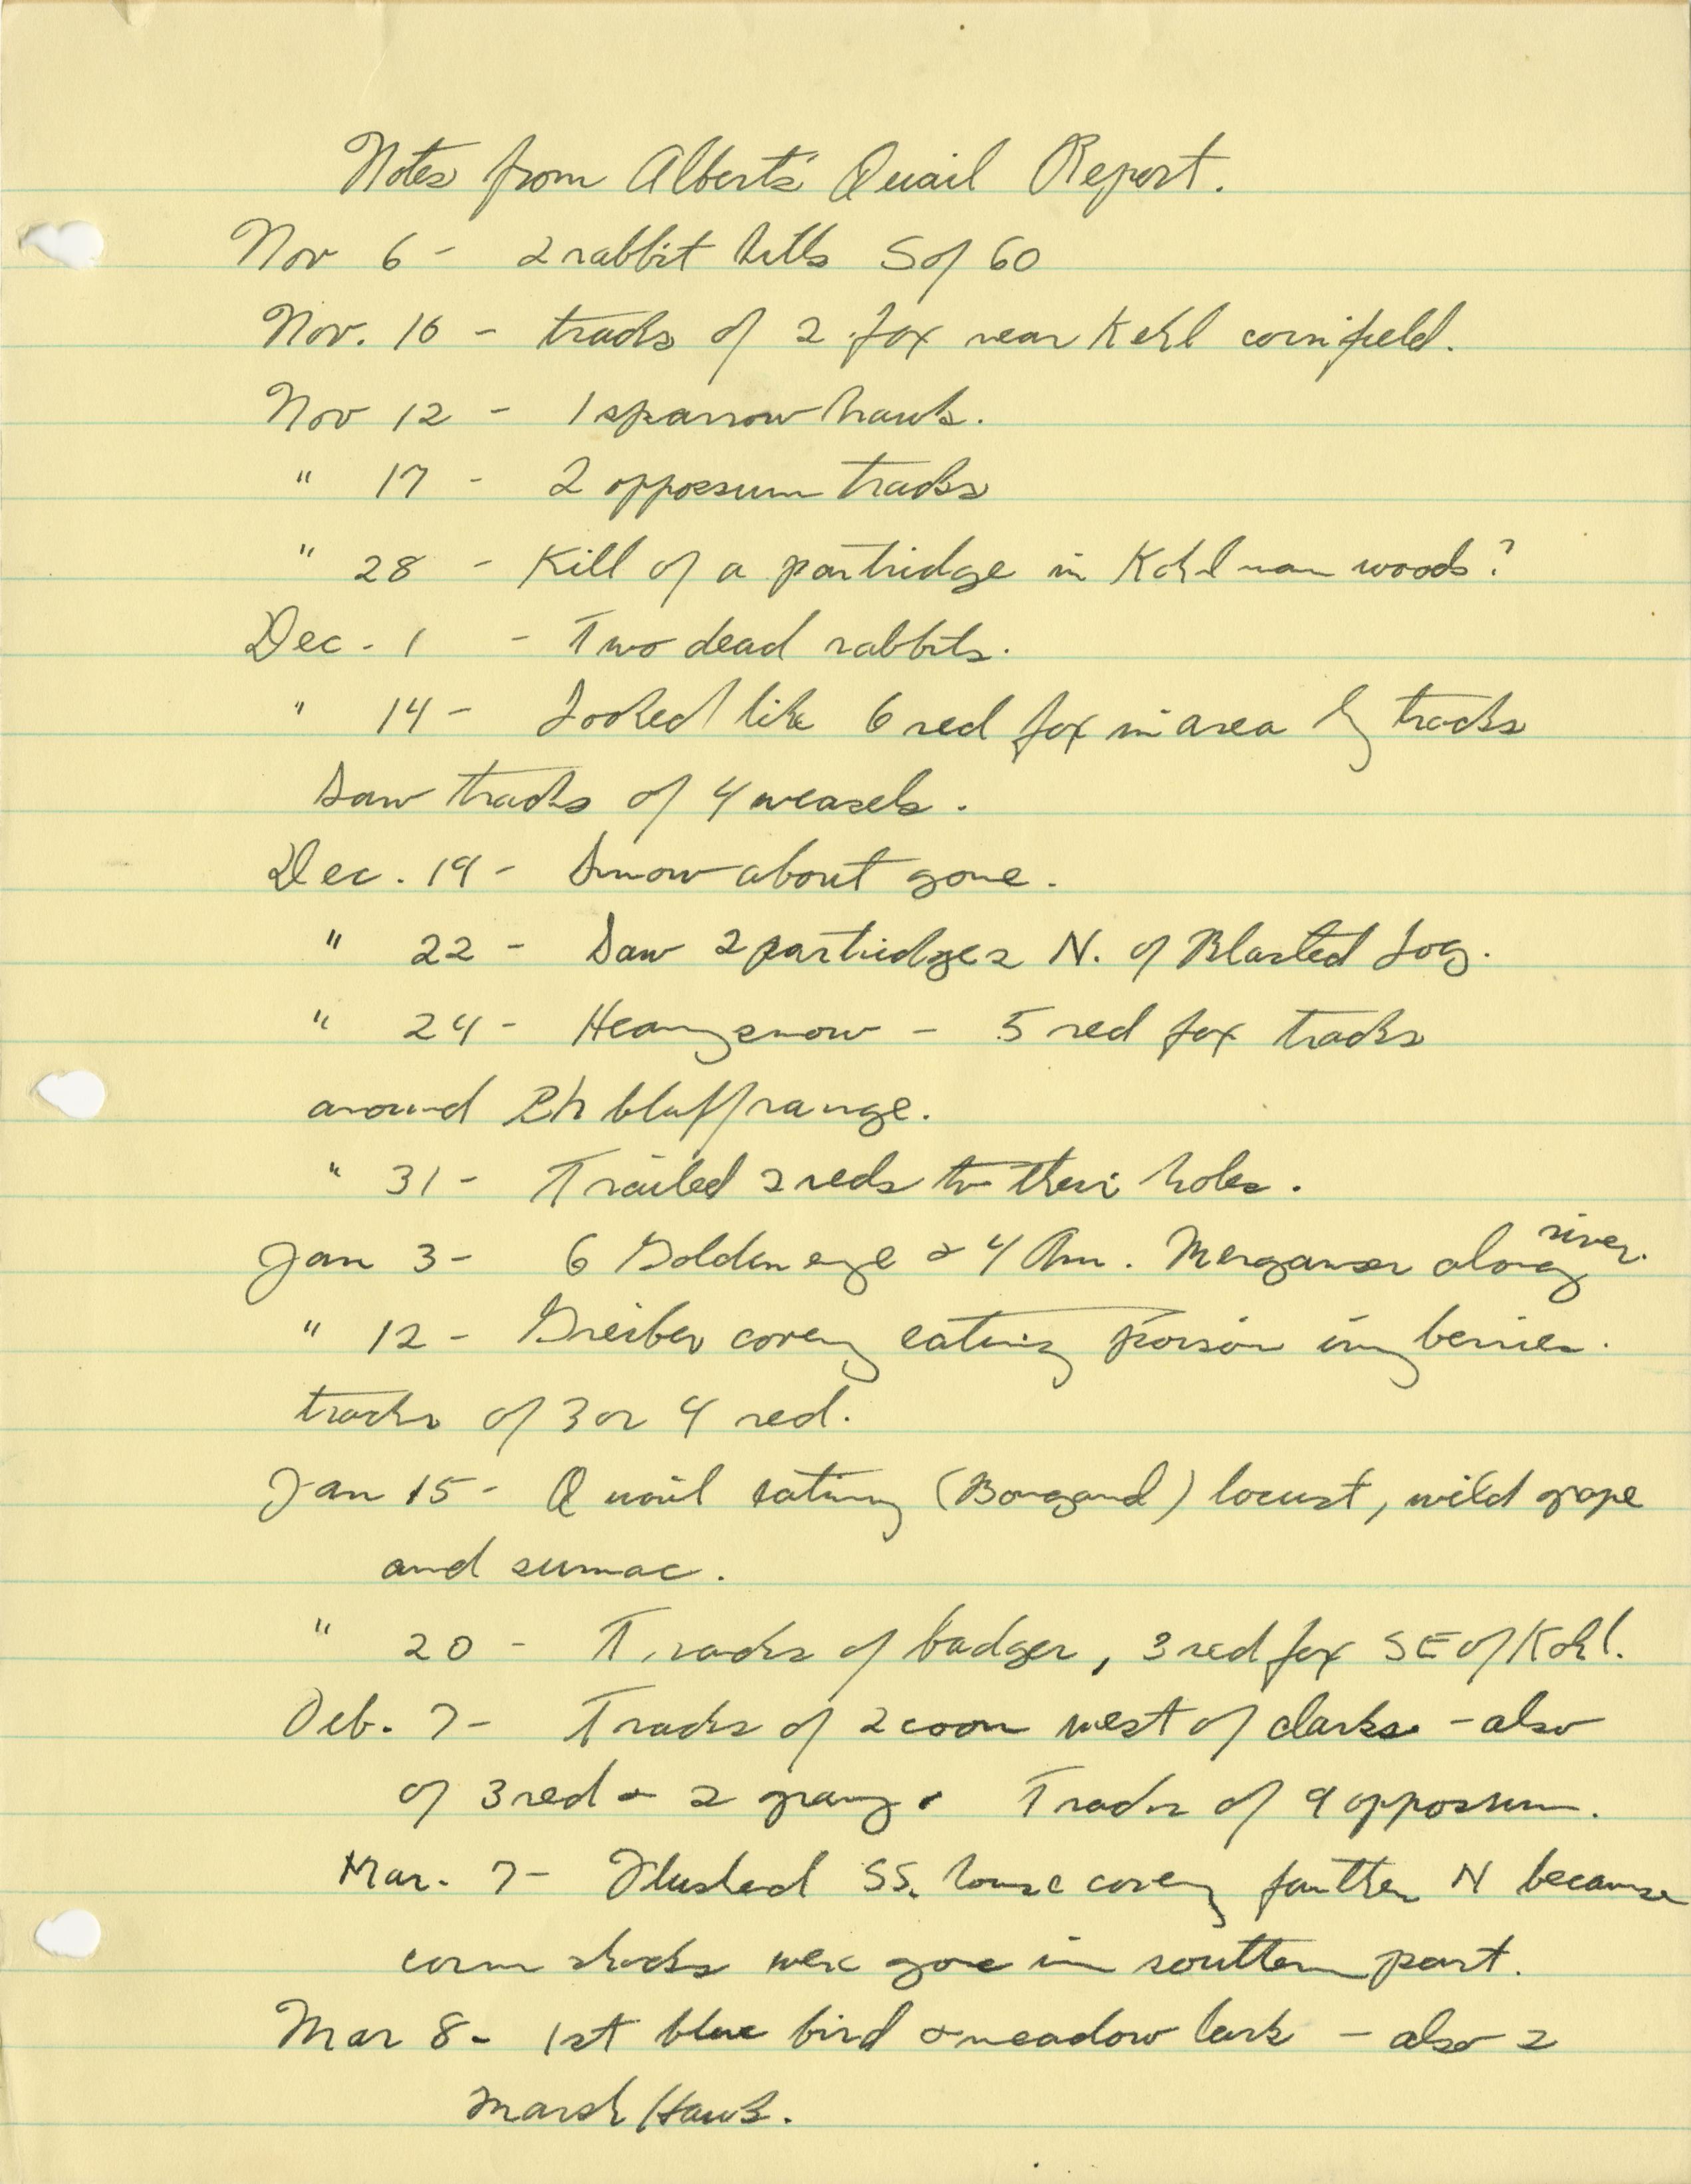 Notes from Albert's Quail Report.
Nov 6 - 2 rabbit kills S of 60
Nov. 16 - tracks of 2 fox near Kehl cornfield.
Nov 12 - 1 sparrow hawk.
" 17 - 2 oppossum tracks
" 28 - Kill of a partridge in Kohlman woods?
Dec. 1 - Two dead rabbits.
" 14 - Looked like 6 red fox in area by tracks
Saw tracks of 4 weasels.
Dec. 19 - Snow about gone.
" 22 - Saw 2 partridges N. of Blasted Log.
" 24 - Heavy snow - 5 red fox tracks
around bluff range.
" 31 - Trailed 2 reds to their holes.
Jan 3 - 6 Golden eye & 4 Am. Merganser along river.
" 12 - covey eating poison ivy berries.
tracks of 3 or 4 red.
Jan 15 - Quail eating () locust, wild grape
and sumac.
" 20 - Tracks of badger, 3 red fox SE of Kohl.
Feb. 7 - Tracks of 2 coon west of clarks - also
of 3 red & 2 gray. Tracks of 9 oppossum.
Mar. 7 - Flushed SS. house covey further N because
corn shocks were gone in southern part.
Mar 8 - 1st blue bird & meadow lark - also 2
Marsh Hawk.